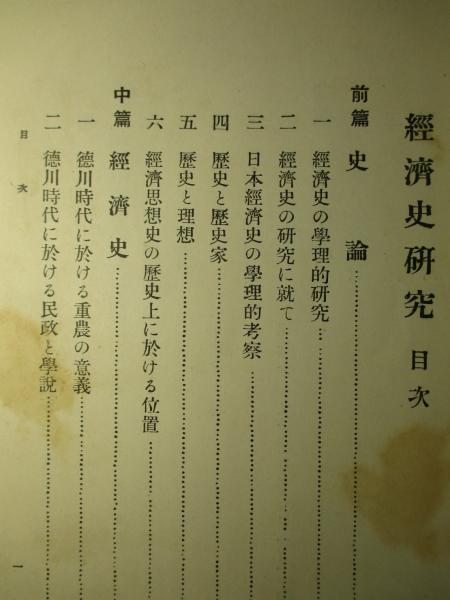 經濟史研究 目次
前篇 史論
一 經濟史の學理的研究
二 經濟史の研究に就て
三 日本經濟史の學理的考察
四 歷史と歷史家
五 歷史と理想
六 經濟思想史の歷史上に於ける位置
中篇 經濟史
一 德川時代に於ける重農の意義
二 德川時代に於ける民政と學說
目次
一